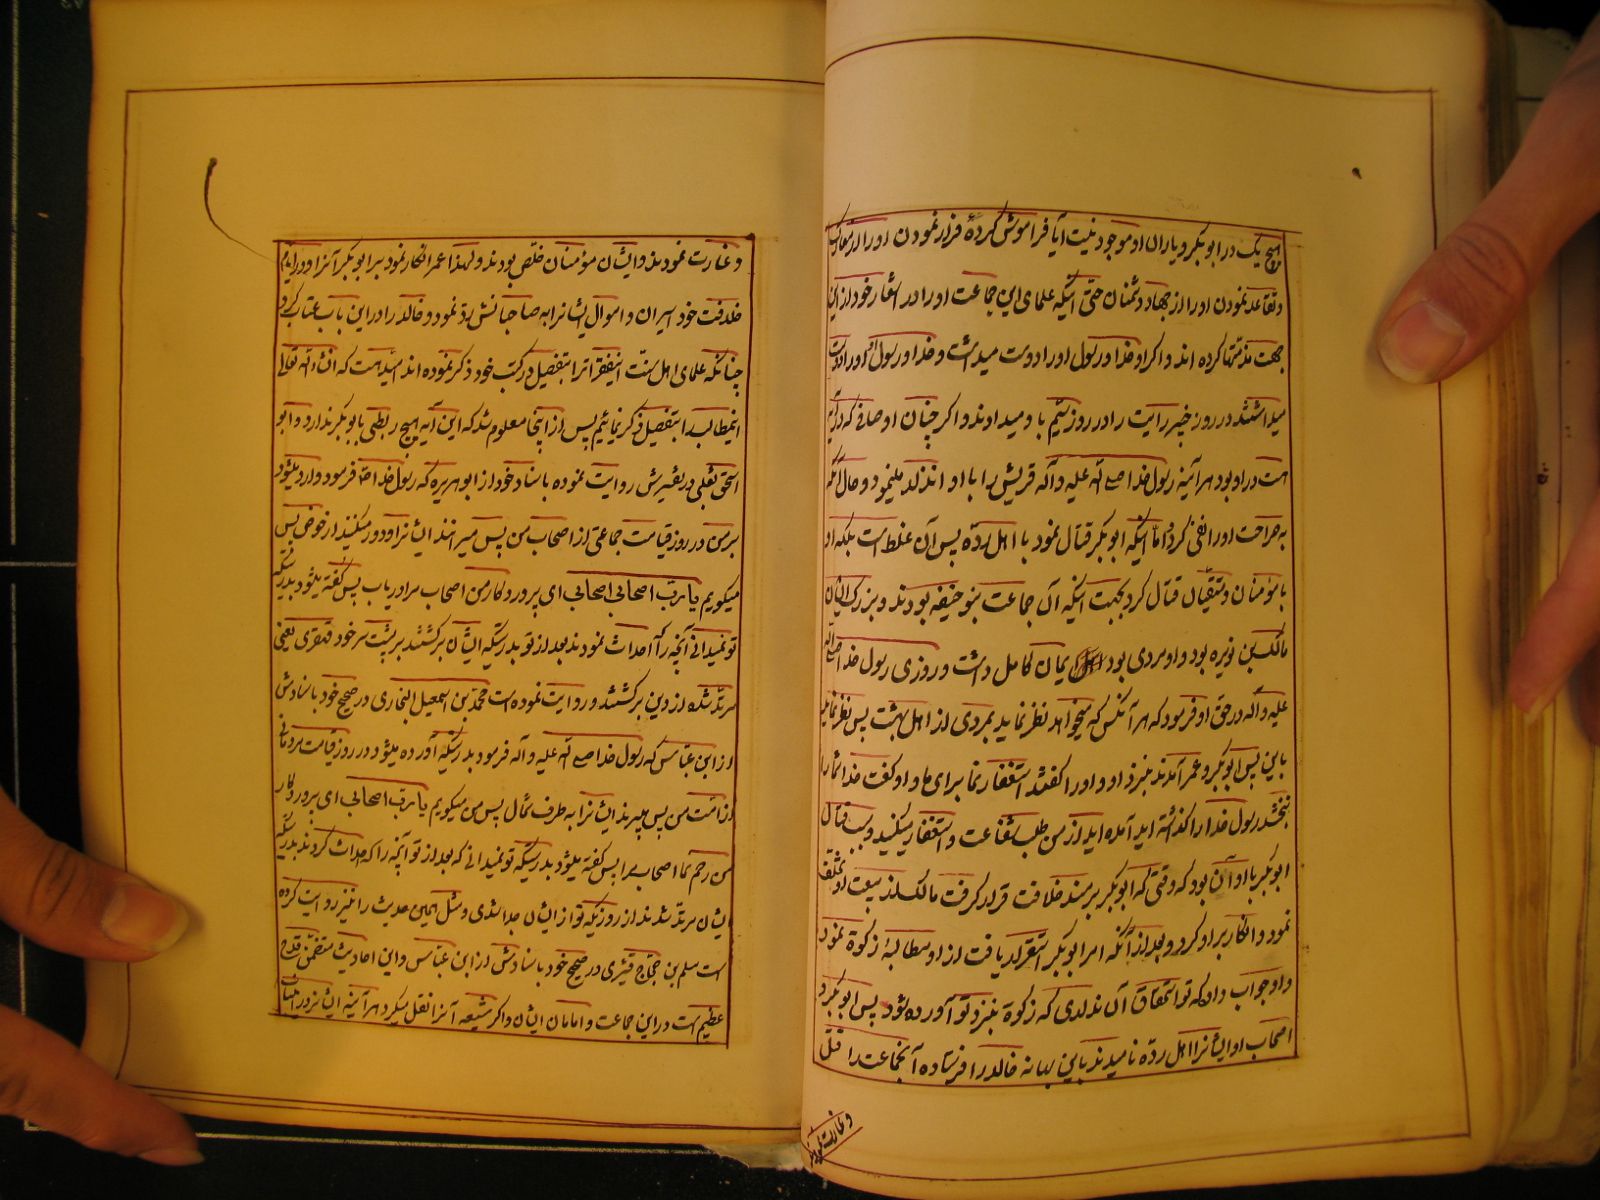 هیچ یک در ابوبکر و یاران او موجود نیست آیا فراموش کردهٔ فرار نمودن او را از معارک
و تقاعد نمودن او را از جهاد دشمنان حتی اینکه علمای این جماعت او را در اشعار خود از این
جهت مذمتها کرده اند و اگر او خدا و رسول او را دوست میداشت و خدا و رسول او او را دوست
میداشتند در روز خیبر رایت را در روز نیم باو میدادند و اگر چنان اوصافی که در آیه
است در او بود هر آینه رسول خدا صلی الله علیه وآله قریش را با او انذار مینمود و حال آنکه
به صراحت او را نفی کرد و امّا اینکه ابوبکر قتال نمود با اهل ردّه پس آن غلط است بلکه او
با مؤمنان و متقیان قتال کرد بجهت اینکه آن جماعت بنو حنیفه بودند و بزرگ ایشان
مالک بن نویره بود و او مردی بود ایمان کامل داشت و روزی رسول خدا صلی الله
علیه وآله در حق او فرمود که هر آنکس که میخواهد نظر نماید بمردی از اهل بهشت پس نظر نماید
باین پس ابوبکر و عمر آمدند بنزد او و او را گفتند استغفار نما برای ما و او گفت خدا شما را
نبخشد رسول خدا را گذاشته اید آمده اید از من طلب شفاعت و استغفار میکنید و سبب قتال
ابوبکر با او آن بود که وقتی که ابوبکر بر مسند خلافت قرار گرفت مالک از بیعت او تخلف
نمود و انکار بر او کرد و بعد از آنکه امر ابوبکر استقرار یافت از او مطالبهٔ زکوة نمود
و او جواب داد که تو استحقاق آن نداری که زکوة بنزد تو آورده شود پس ابوبکر و
اصحاب او ایشانرا اهل ردّه نامیدند باین بهانه خالد را فرستاده آنجماعت را قتل
و غارت نمودند
و غارت نمودند و ایشان مؤمنان خلص بودند و لهذا عمر انکار نمود بر ابوبکر آنرا و در ایام
خلافت خود اسیران و اموال ایشانرا به صاحبانش ردّ نمود و خالد را در این باب عتاب کرد
چنانکه علمای اهل سنت اینفقرات را بتفصیل در کتب خود ذکر نموده اند امید هست که انشاء الله تعالی
انمطالب را بتفصیل ذکر نمائیم پس از اینجا معلوم شد که این آیه هیچ ربطی بابوبکر ندارد و ابو
اسحق ثعلبی در تفسیرش روایت نموده باسناد خود از ابو هریره که رسول خدا ص فرمود وارد میشود
بر من در روز قیامت جماعتی از اصحاب من پس میرانند ایشانرا و دور میکنند از حوض پس
میگویم یا رب اصحابی اصحابی ای پروردگار من اصحاب مرا دریاب پس گفته میشود بدرستیکه
تو نمیدانی آنچه را احداث نمودند بعد از تو بدرستیکه ایشان برگشتند بر پشت سر خود قهقری یعنی
مرتدّ شده از دین برگشتند و روایت نموده است محمد بن اسمعیل البخاری در صحیح خود باسنادش
از ابن عباس که رسول خدا صلی الله علیه وآله فرمود بدرستیکه آورده میشود در روز قیامت مردمانی
از امّت من پس میبرند ایشانرا به طرف شمال پس من میگویم یا رب اصحابی ای پروردگار
من رحم نما اصحاب مرا پس گفته میشود بدرستیکه تو نمیدانی که بعد از تو آنچه را که احداث کردند بدرستیکه
ایشان مرتدّ شدند از روزیکه تو از ایشان جدا شدی و مثل همین حدیث را نیز روایت کرده
است مسلم بن حجاج قشیری در صحیح خود باسنادش از ابن عباس و این احادیث متضمّن قدح
عظیم است در این جماعت و امامان ایشان و اگر شیعه آنرا نقل میکرد هر آینه ایشانرا